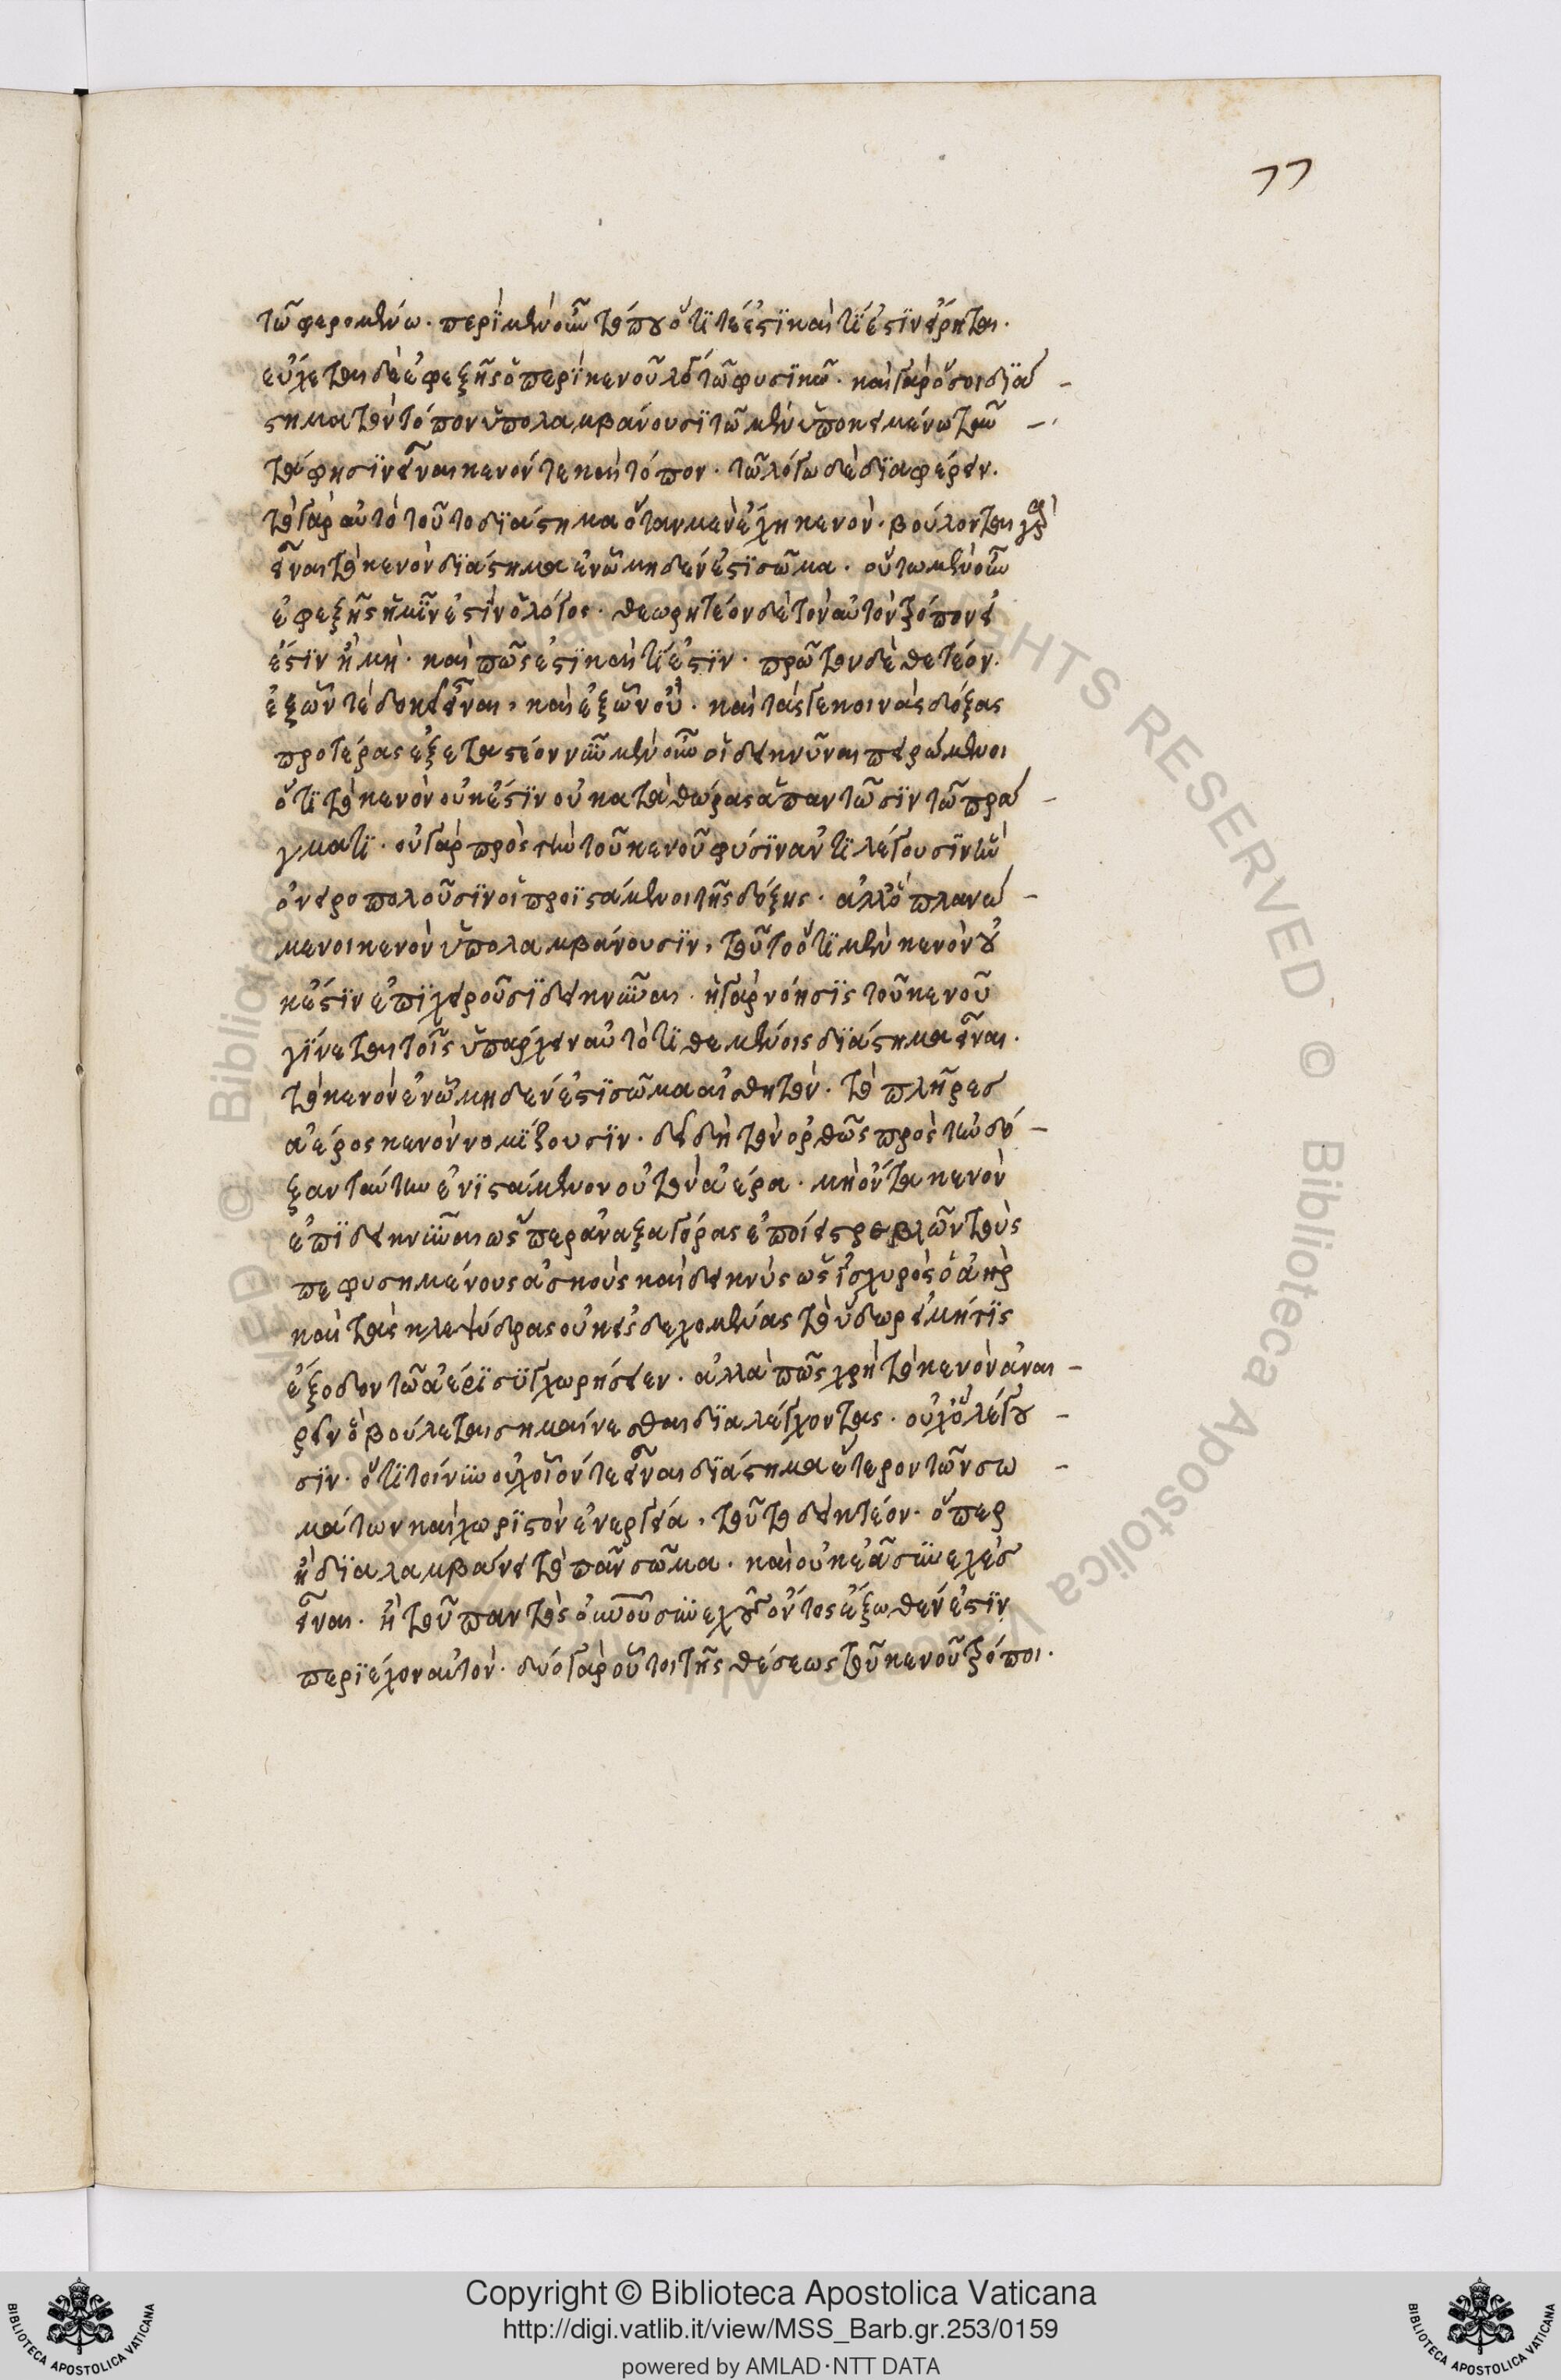 77
τῶ φερομένω. περὶ μὲν οὖν τόπου ὅτι τέ ἐστι καὶ τί ἐστιν εἴρηται.
εὔχεται δὲ ἐφεξῆς ὁ περὶ κενοῦ λό τῶ φυσικῶ. καὶ γὰρ ὅσοι διά-
στημα τὸν τόπον ὑπολαμβάνουσι τῶ μὲν ὑποκειμένω ταυ-
τά φησιν εἶναι κενόν τε καὶ τόπον. τῶ λόγω δὲ διαφέρειν.
τὸ γὰρ αὐτὸ τοῦτο διάστημα ὅταν μὲν ἔχη κενὸν. βούλονται γὰρ
εἶναι τὸ κενὸν διάστημα ἐν ὧ μηδέν ἐστι σῶμα. οὕτω μὲν οὖν
ἐφεξῆς ἡμῖν ἐστὶν ὁ λόγος. θεωρητέον δὲ τὸν αὐτὸν τρόπον εἰ
ἔστιν ἢ μὴ. καὶ πῶς ἐστι καὶ τί ἐστιν. πρῶτον δὲ θετέον.
ἐξ ὧν τὲ δοκεῖ εἶναι, καὶ ἐξ ὧν οὐ. καὶ τάς γε κοινὰς δόξας
προτέρας ἐξεταστέον νῦν μὲν οὖν οἱ δεικνῦναι πειρώμενοι
ὅτι τὸ κενὸν οὐκ ἔστιν οὐ κατὰ θώρας ἀπαντῶσιν τῶ πρά-
γματι. οὐ γὰρ πρὸς τὴν τοῦ κενοῦ φύσιν ἀντιλέγουσιν ἣν
ὀνειροπολοῦσιν οἱ προϊστάμενοι τῆς δόξης. ἀλλ' ὃ πλανώ-
μενοι κενὸν ὑπολαμβάνουσιν, τοῦτο ὅτι μὲν κενὸν οὐ
κέστιν ἐπιχειροῦσι δεικνῦναι. ἡ γὰρ νόησις τοῦ κενοῦ
γίνεται τοῖς ὑπάρχειν αὐτὸ τιθεμένοις διάστημα εἶναι.
τὸ κενὸν ἐν ὧ μηδέν ἐστι σῶμα αἰσθητόν. τὸ πλῆρες
ἀέρος κενὸν νομίζουσιν. δεῖ δὴ τὸν ὀρθῶς πρὸς τὴν δό-
ξαν ταύτην ἐνιστάμενον οὐ τὸν ἀέρα. μὴ ὄντα κενὸν
ἐπιδεικνῦναι ὥσπερ ἀναξαγόρας ἐποίει στρεβλῶν τοὺς
πεφυσημένους ἀσκοὺς καὶ δεικνὺς ὡς ἰσχυρὸς ὁ ἀὴρ
καὶ τὰς κλεψύδρας οὐκ εἰσδεχομένας τὸ ὕδωρ εἰ μή τις
ἔξοδον τῶ ἀέρι συγχωρήσειεν. ἀλλὰ πῶς χρὴ τὸ κενὸν ἀναι-
ρεῖν ὃ βούλεται σημαίνεσθαι διαλέγχοντας. οὐχ ὃ λέγου-
σιν. ὅτι τοίνυν οὐχ οἷόν τε εἶναι διάστημα ἕτερον τῶν σω-
μάτων καὶ χωριστὸν ἐνεργεία, τοῦτο δεικτέον. ὅπερ
ἢ διαλαμβάνει τὸ πᾶν σῶμα. καὶ οὐκ ἐᾶ συνεχὲς
εἶναι. ἢ τοῦ παντὸς ὁμοῦ συνεχοῦς ὄντος ἔξωθέν ἐστιν
περιέχον αὐτὸν. δύο γὰρ οὗτοι τῆς θέσεως τοῦ κενοῦ τρόποι.
Copyright © Biblioteca Apostolica Vaticana
http://digi.vatlib.it/view/MSS_Barb.gr.253/0159
powered by AMLAD·NTT DATA